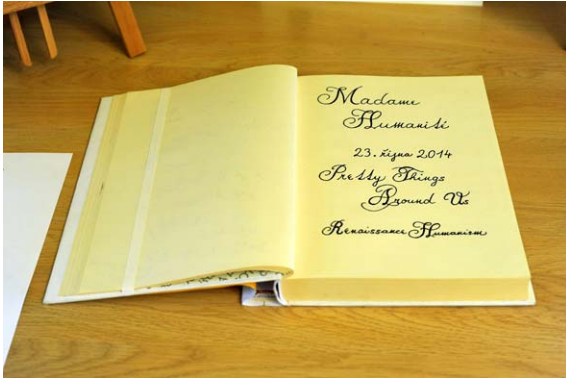 Madame
Humanité
23. října 2014
Pretty Things
Around Us
Renaissance Humanism